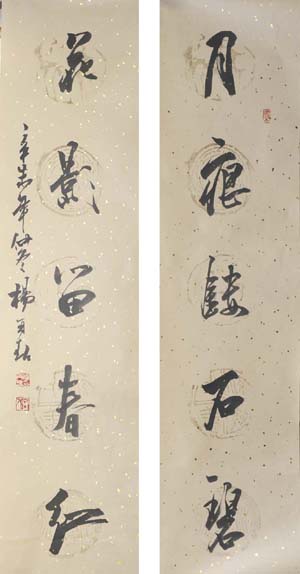 月痕鏤石碧
花影留春紅
辛未年仲冬楊再春